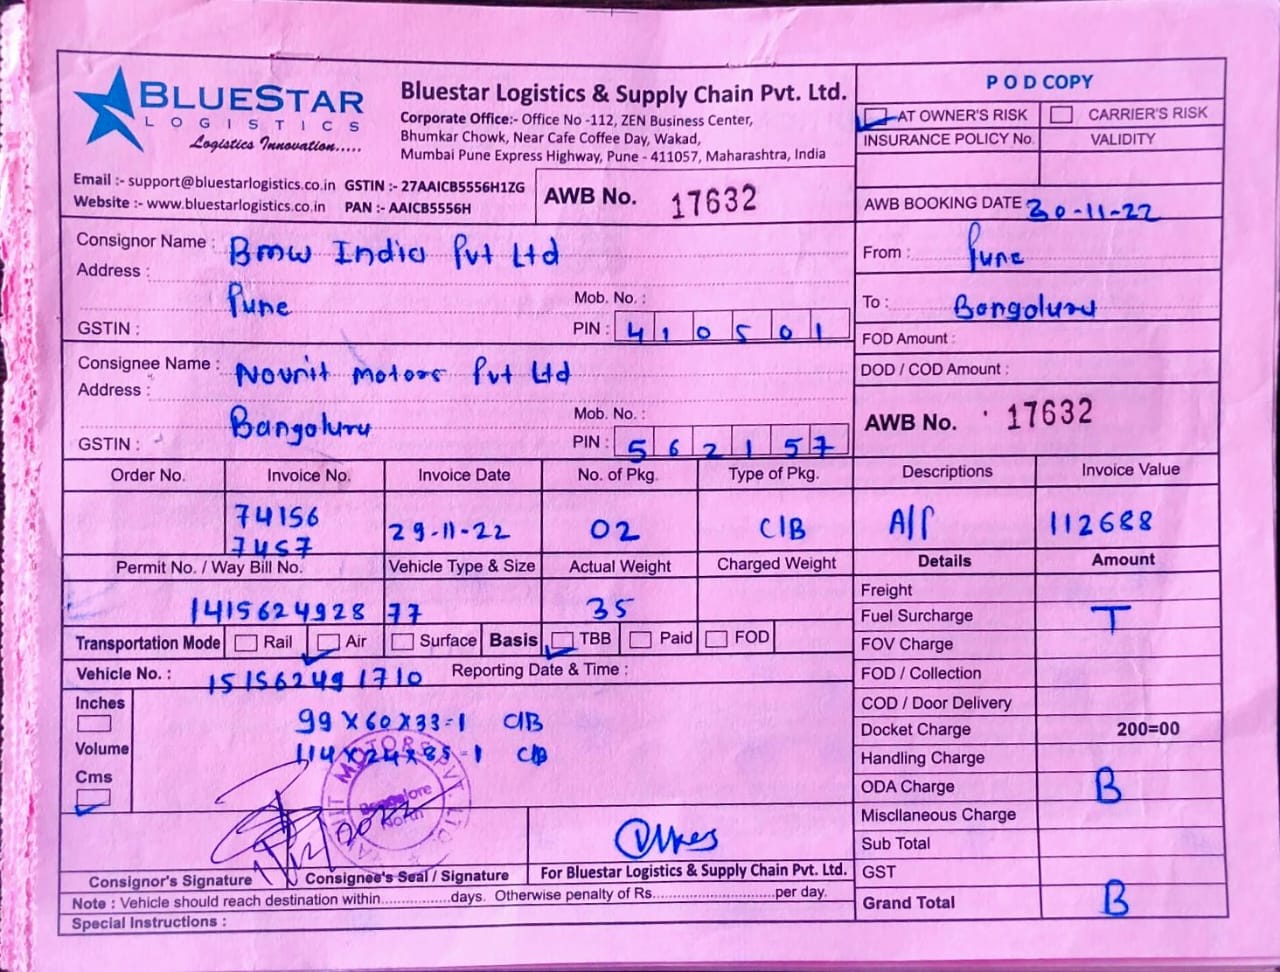 BLUESTAR
LOGISTICS
Logistics Innovation.....
Bluestar Logistics & Supply Chain Pvt. Ltd.
Corporate Office:- Office No -112, ZEN Business Center,
Bhumkar Chowk, Near Cafe Coffee Day, Wakad,
Mumbai Pune Express Highway, Pune - 411057, Maharashtra, India
Email :- support@bluestarlogistics.co.in GSTIN :- 27AAICB5556H1ZG
Website :- www.bluestarlogistics.co.in PAN :- AAICB5556H
AWB No. 17632
POD COPY
AT OWNER'S RISK CARRIER'S RISK
INSURANCE POLICY No. VALIDITY
AWB BOOKING DATE 30-11-22
Consignor Name : BMW India Pvt Ltd
Address :
Pune
Mob. No. :
GSTIN : PIN : 410501
From : Pune
To : Bangoluru
FOD Amount :
DOD / COD Amount :
Consignee Name : Navnit Motors Pvt Ltd
Address :
Bangoluru
Mob. No. :
GSTIN : PIN : 562157
AWB No. 17632
Order No. Invoice No. Invoice Date No. of Pkg. Type of Pkg. Descriptions Invoice Value
74156
7457 29-11-22 02 C/B A/P 112688
Permit No. / Way Bill No. Vehicle Type & Size Actual Weight Charged Weight Details Amount
1415624928 77 35
Freight
Fuel Surcharge T
FOV Charge
FOD / Collection
COD / Door Delivery
Docket Charge 200=00
Handling Charge
ODA Charge B
Miscllaneous Charge
Sub Total
GST
Grand Total B
Transportation Mode Rail Air Surface Basis TBB Paid FOD
Vehicle No. : 151562491710 Reporting Date & Time :
Inches
Volume
Cms
99x60x33=1 C/B
114x24x85=1 C/B
Bangalore
North
Consignor's Signature Consignee's Seal / Signature For Bluestar Logistics & Supply Chain Pvt. Ltd.
Note : Vehicle should reach destination within.................days. Otherwise penalty of Rs..............................per day.
Special Instructions :